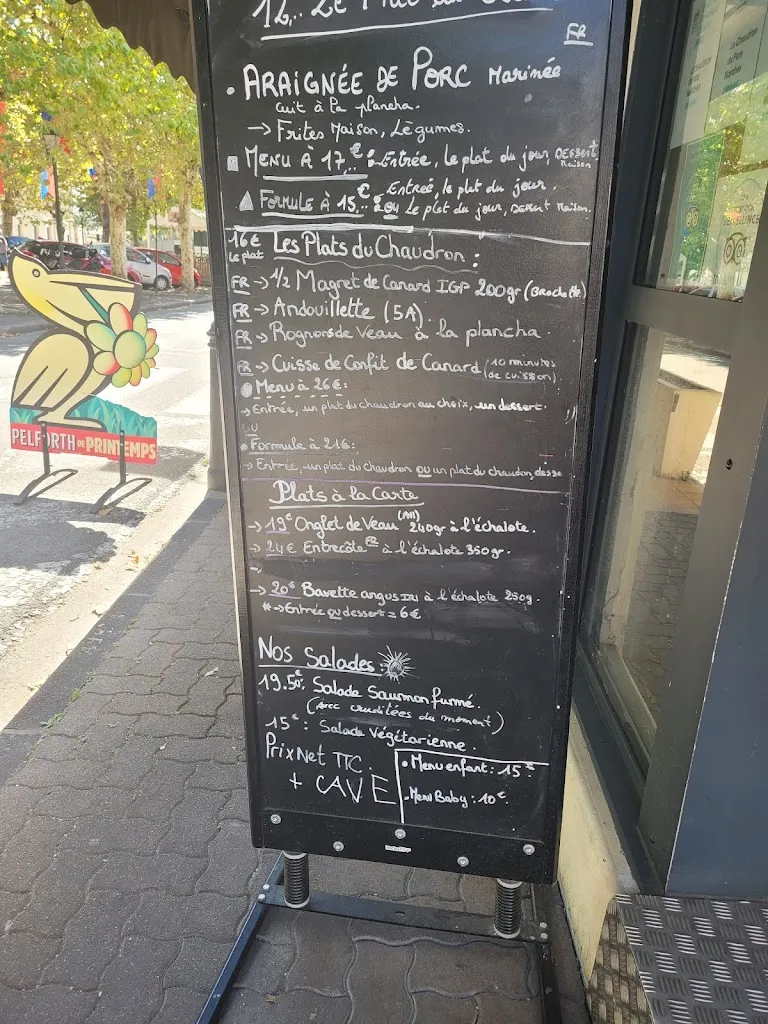 FR
• ARAIGNÉE DE PORC Marinée
cuit à la plancha.
→ Frites Maison, Légumes.
MENU À 17€ : Entrée, le plat du jour DESSERT Maison
FORMULE À 15€ - Entrée, le plat du jour.
Le plat du jour, DESSERT Maison.
16€ Le plat
Les Plats du Chaudron :
FR → 1/2 Magret de Canard IGP 200gr (Brochette)
FR → Andouillette (5A).
FR → Rognons de Veau à la plancha.
FR → Cuisse de Confit de Canard (10 minutes de cuisson)
Menu à 26€ :
→ Entrée, un plat du chaudron au choix, un dessert.
OU
• Formule à 21€ :
→ Entrée, un plat du chaudron ou un plat du chaudron, desse
Plats à la Carte
→ 19€ Onglet de Veau 240gr à l'échalote.
→ 24€ Entrecôte FR à l'échalote 350gr.
→
→ 20€ Bavette angus IRL à l'échalote 250g.
* → Entrée ou dessert = 6€
Nos Salades :
19.50€ : Salade Saumon fumé.
(avec cruditées du moment)
15€ : Salade Végitarienne.
Prix Net TTC.
+ CAVE
• Menu enfant : 15€.
- Menu Baby : 10€.
PELFORTH DE PRINTEMPS